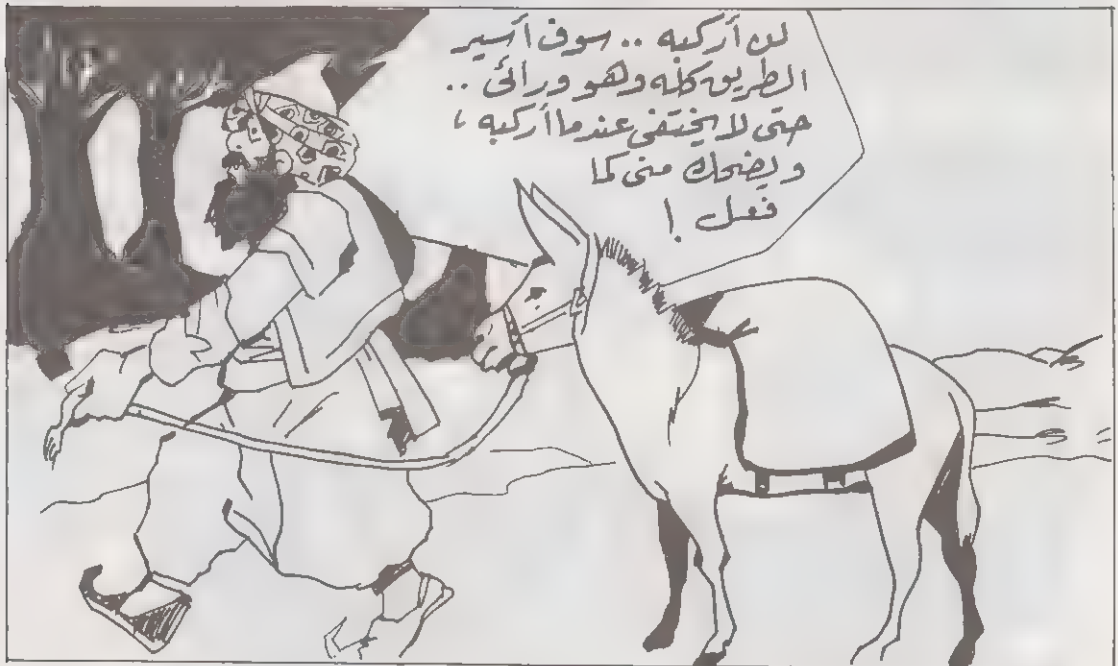 لن أركبه .. سوف أسير
الطريق كله وهو ورائى ..
حتى لا يختفى عندما أركبه ،
ويضحك منى كما
فعل !